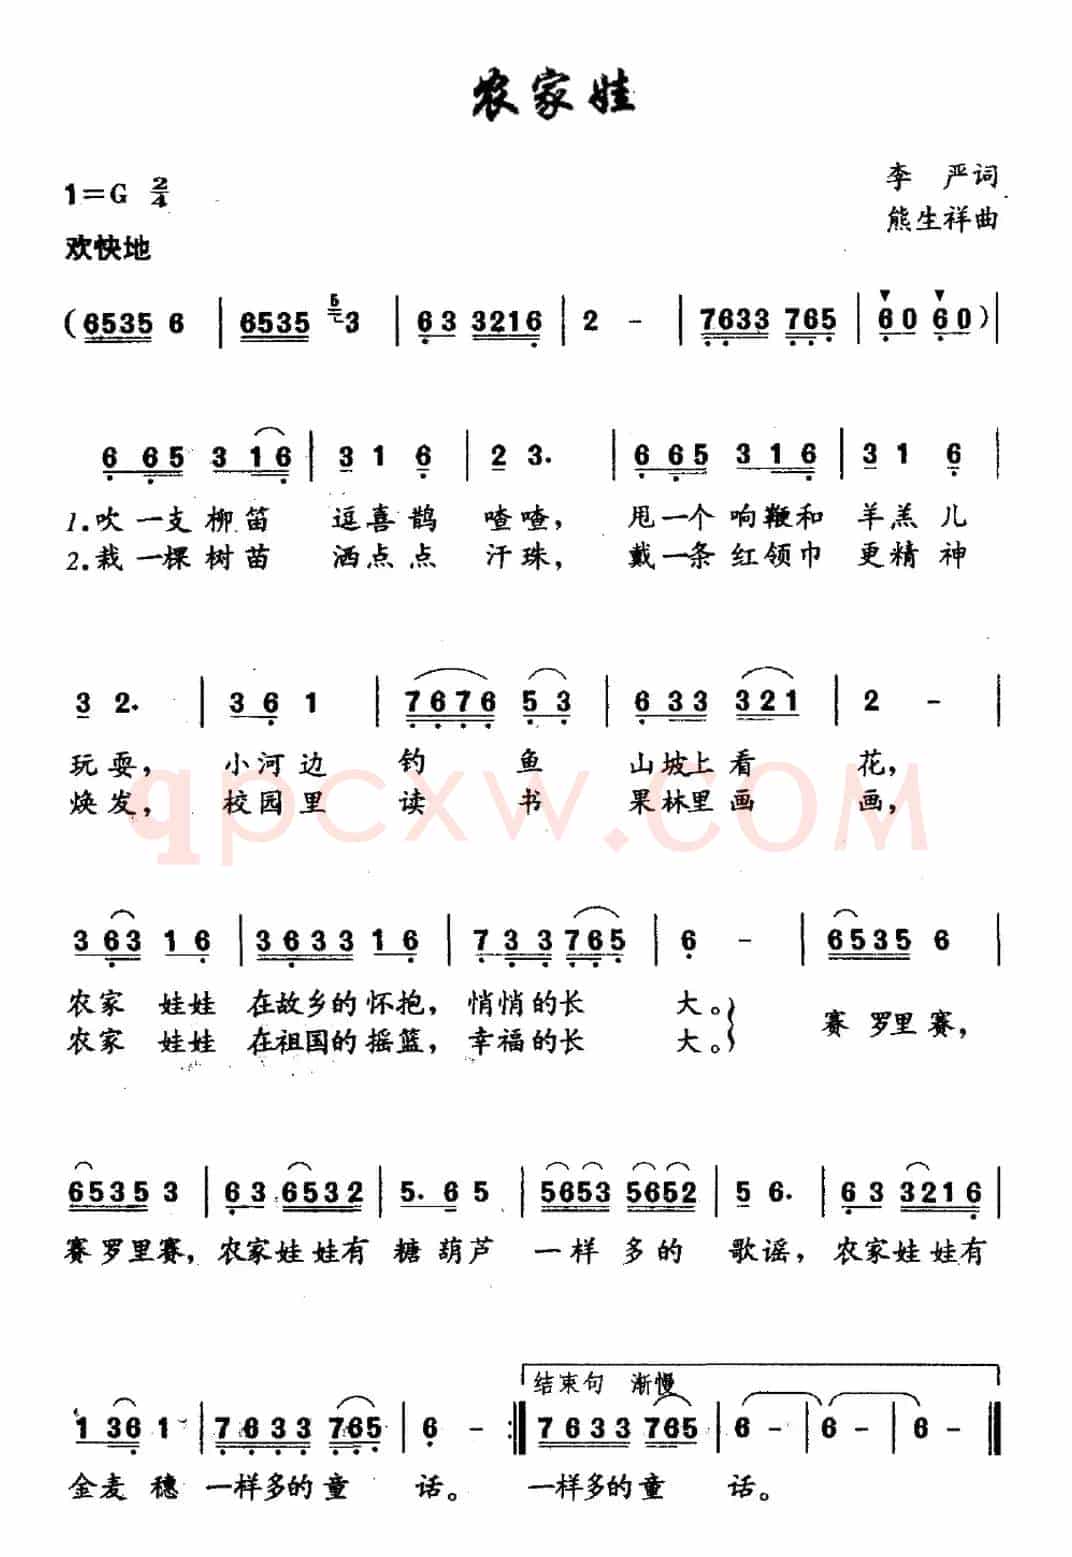 农家娃
1=G 2/4
李 严词
欢快地
熊生祥曲
(6535 6 | 6535 5 3 | 63 3216 | 2 - | 7633 765 | 60 60)|
6 65 3 16 | 3 1 6 | 2 3. | 6 65 3 16 | 3 1 6 |
1.吹一支柳笛 逗喜鹊 喳喳, 甩一个响鞭和 羊羔儿
2.栽一棵树苗 洒点点 汗珠, 戴一条红领巾 更精神
3 2. | 3 6 1 | 7676 5 3 | 6 33 321 | 2 - |
玩耍, 小河边 钓 鱼 山坡上看 花,
焕发, 校园里 读 书 果林里画 画,
qpcxw.COM
3 63 1 6 | 3633 1 6 | 7 3 3 765 | 6 - | 6535 6 |
农家 娃娃 在故乡的怀抱, 悄悄的长 大。
农家 娃娃 在祖国的摇篮, 幸福的长 大。
赛 罗里赛,
6535 3 | 63 6532 | 5. 6 5 | 5653 5652 | 5 6. | 63 3216 |
赛罗里赛, 农家娃娃有 糖葫芦 一样多的 歌谣, 农家娃娃有
结束句 渐慢
1 36 1 | 7633 765 | 6 - :| 7633 765 | 6 - | 6 - | 6 - ||
金麦 穗 一样多的童 话。 一样多的童 话。